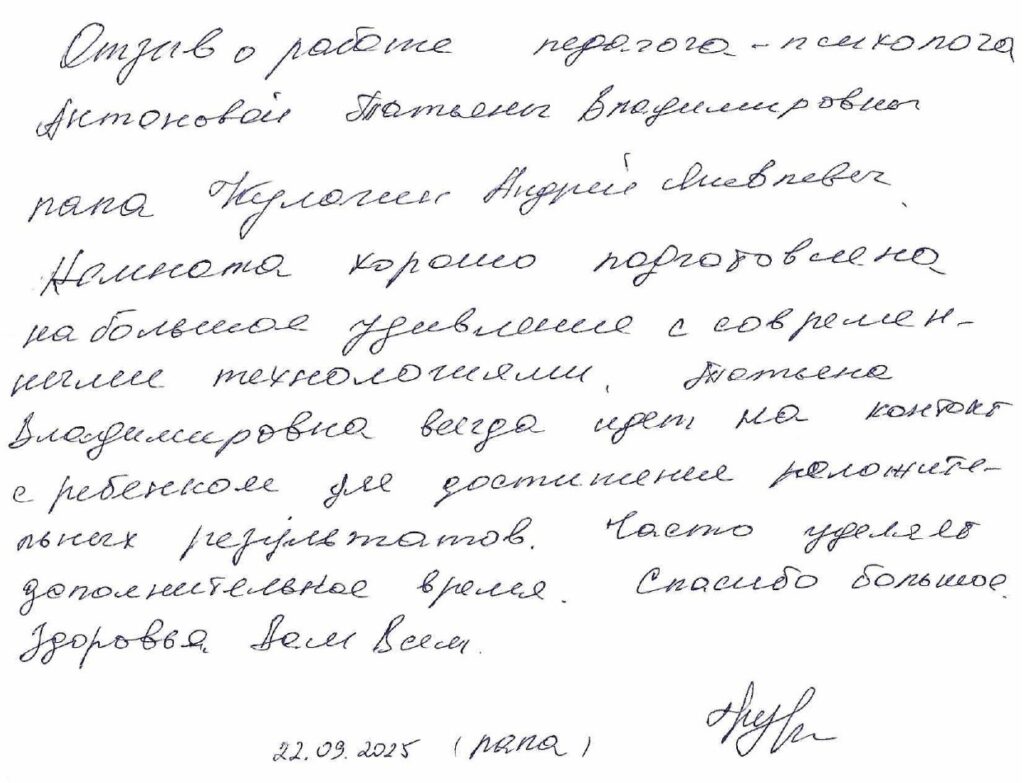 Отзыв о работе педагога-психолога
Антоновой Татьены Владимировны
папа Кулагин Андрей Яковлевич.
Комната хорошо подготовлена
на большое удивление с современ-
ными технологиями. Татьена
Владимировна всегда идет на контакт
с ребенком для достижения положите-
льных результатов. Часто уделяет
дополнительное время. Спасибо большое.
Здоровья Вам Всем.
22.09.2025 (папа)